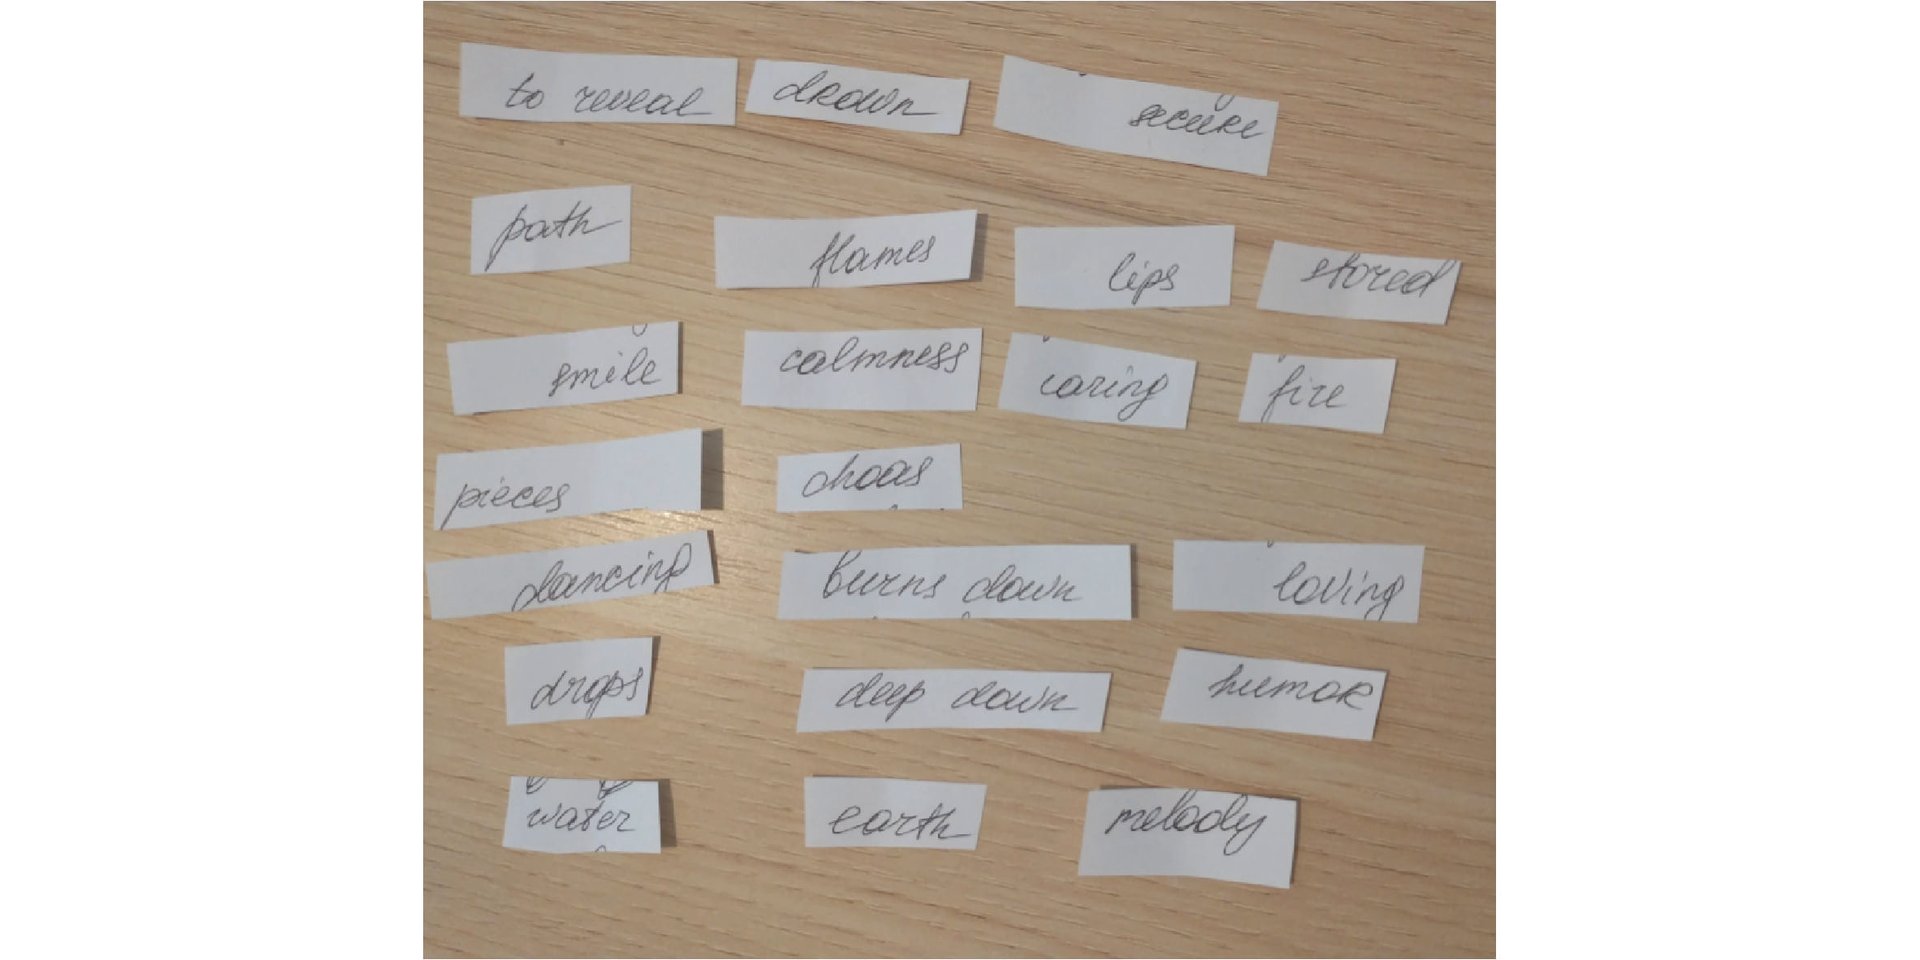 to reveal drown secure
path flames lips stored
smile calmness caring fire
pieces choas
dancing burns down loving
drops deep down humor
water earth melody